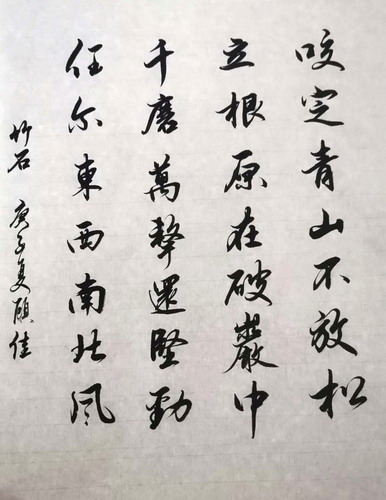 咬定青山不放松
立根原在破巖中
千磨萬擊還堅勁
任尔東西南北风
竹石 庚子夏頤佳